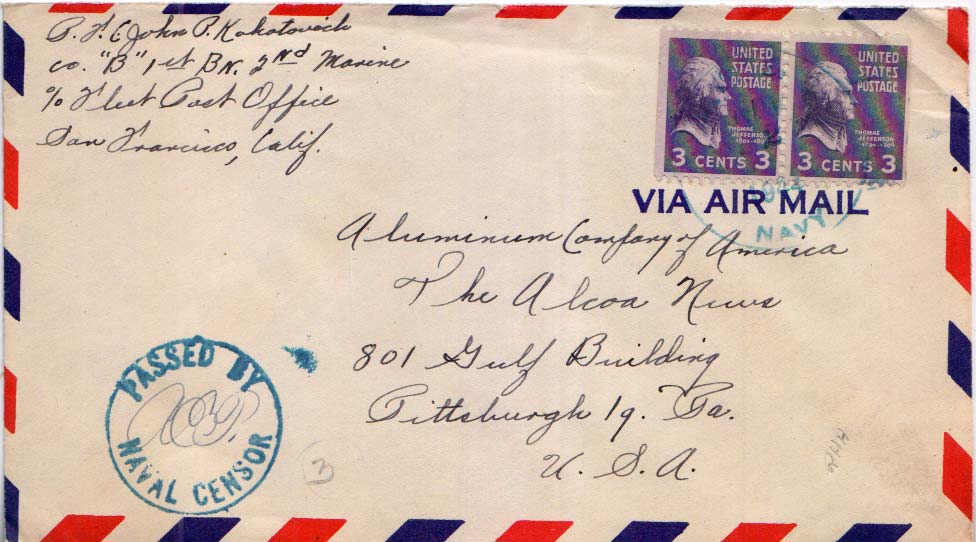 P.F.C. John P. Kokotovich
Co. "B" 1st Bn. 2nd Marine
% Fleet Post Office
San Francisco, Calif.
UNITED STATES POSTAGE
THOMAS JEFFERSON
3 CENTS 3
UNITED STATES POSTAGE
THOMAS JEFFERSON
3 CENTS 3
VIA AIR MAIL
NAVY
Aluminum Company of America
The Alcoa News
801 Gulf Building
Pittsburgh 19. Pa.
U. S. A.
PASSED BY
NAVAL CENSOR
3